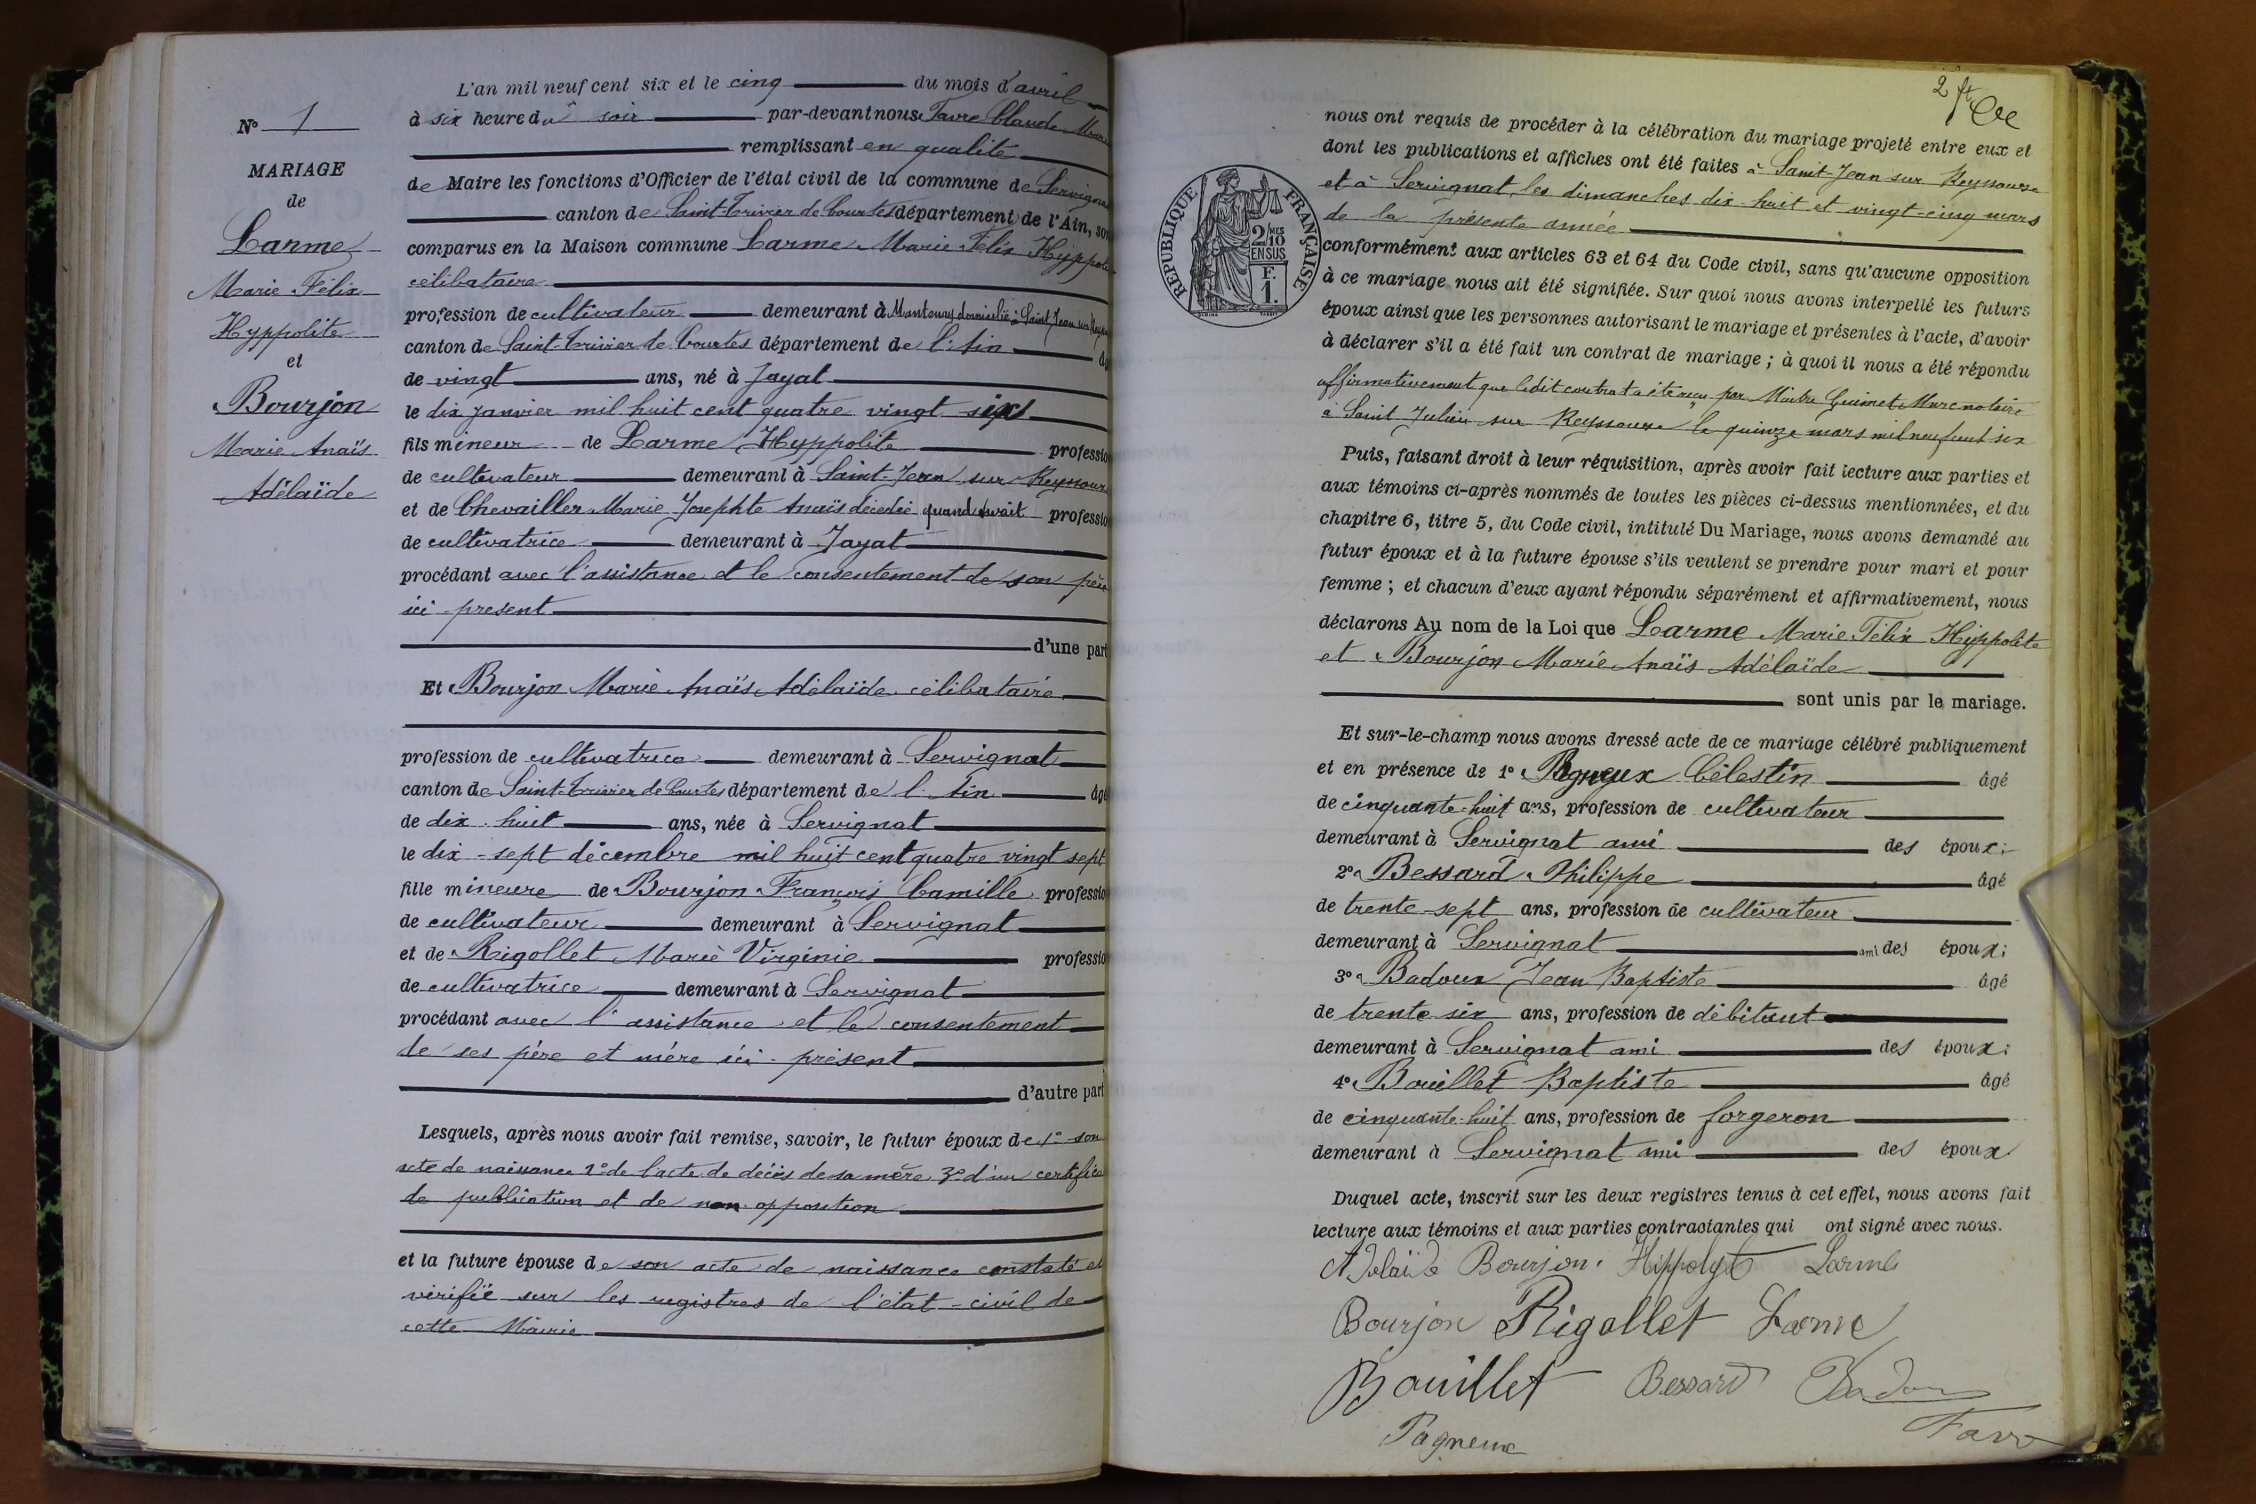 L'an mil neuf cent six et le cinq du mois d'avril
à six heure du soir par-devant nous Favre Claude Marie
remplissant en qualité
de Maire les fonctions d'Officier de l'état civil de la commune de Servignat
canton de Saint-Trivier de Courtes département de l'Ain, son
comparus en la Maison commune Larme Marie Félix Hyppolite
célibataire
profession de cultivateur demeurant à Mantenay domicilié à Saint Jean sur Reyss
canton de Saint-Trivier de Courtes département de l'Ain âg
de vingt ans, né à Jayat
le dix janvier mil huit cent quatre vingt six
fils mineur de Larme Hyppolite professio
de cultivateur demeurant à Saint-Jean sur Reyssouze
et de Chevailler Marie Josephte Anaïs décédée quand vivait professio
de cultivatrice demeurant à Jayat
procédant avec l'assistance et le consentement de son père
ici présent
d'une part
Et Bourjon Marie Anaïs Adélaïde célibataire
profession de cultivatrice demeurant à Servignat
canton de Saint-Trivier de Courtes département de l'Ain âgé
de dix-huit ans, née à Servignat
le dix-sept décembre mil huit cent quatre vingt sept
fille mineure de Bourjon François Camille professio
de cultivateur demeurant à Servignat
et de Rigollet Marie Virginie professio
de cultivatrice demeurant à Servignat
procédant avec l'assistance et le consentement
de ses père et mère ici présent
d'autre part
Lesquels, après nous avoir fait remise, savoir, le futur époux de 1° son
acte de naissance 2° de l'acte de décès de sa mère 3° d'un certifica
de publication et de non opposition
et la future épouse de son acte de naissance constaté et
vérifié sur les registres de l'état-civil de
cette Mairie
N° 1
MARIAGE
de
Larme
Marie Félix
Hyppolite
et
Bourjon
Marie Anaïs
Adélaïde
2 ft
nous ont requis de procéder à la célébration du mariage projeté entre eux et
dont les publications et affiches ont été faites à Saint-Jean sur Reyssouze
et à Servignat, les dimanches dix-huit et vingt-cinq mars
de la présente année
conformément aux articles 63 et 64 du Code civil, sans qu'aucune opposition
à ce mariage nous ait été signifiée. Sur quoi nous avons interpellé les futurs
époux ainsi que les personnes autorisant le mariage et présentes à l'acte, d'avoir
à déclarer s'il a été fait un contrat de mariage ; à quoi il nous a été répondu
affirmativement que ledit contrat a été reçu par Maître Guimet Marc notaire
à Saint Julien sur Reyssouze le quinze mars mil neuf cent six
Puis, faisant droit à leur réquisition, après avoir fait lecture aux parties et
aux témoins ci-après nommés de toutes les pièces ci-dessus mentionnées, et du
chapitre 6, titre 5, du Code civil, intitulé Du Mariage, nous avons demandé au
futur époux et à la future épouse s'ils veulent se prendre pour mari et pour
femme ; et chacun d'eux ayant répondu séparément et affirmativement, nous
déclarons Au nom de la Loi que Larme Marie Félix Hyppolite
et Bourjon Marie Anaïs Adélaïde
sont unis par le mariage.
Et sur-le-champ nous avons dressé acte de ce mariage célébré publiquement
et en présence de 1° Pagneux Célestin âgé
de cinquante-huit ans, profession de cultivateur
demeurant à Servignat ami des époux ;
2° Bessard Philippe âgé
de trente-sept ans, profession de cultivateur
demeurant à Servignat ami des époux ;
3° Badoux Jean Baptiste âgé
de trente six ans, profession de débitant
demeurant à Servignat ami des époux ;
4° Bouillet Baptiste âgé
de cinquante-huit ans, profession de forgeron
demeurant à Servignat ami des époux
Duquel acte, inscrit sur les deux registres tenus à cet effet, nous avons fait
lecture aux témoins et aux parties contractantes qui ont signé avec nous.
Adélaïde Bourjon. Hippolyte Larme
Bourjon Rigollet Larme
Bouillet Bessard Badoux
Pagneux Favre
RÉPUBLIQUE FRANÇAISE
2/10 MES
EN SUS
F.
1.